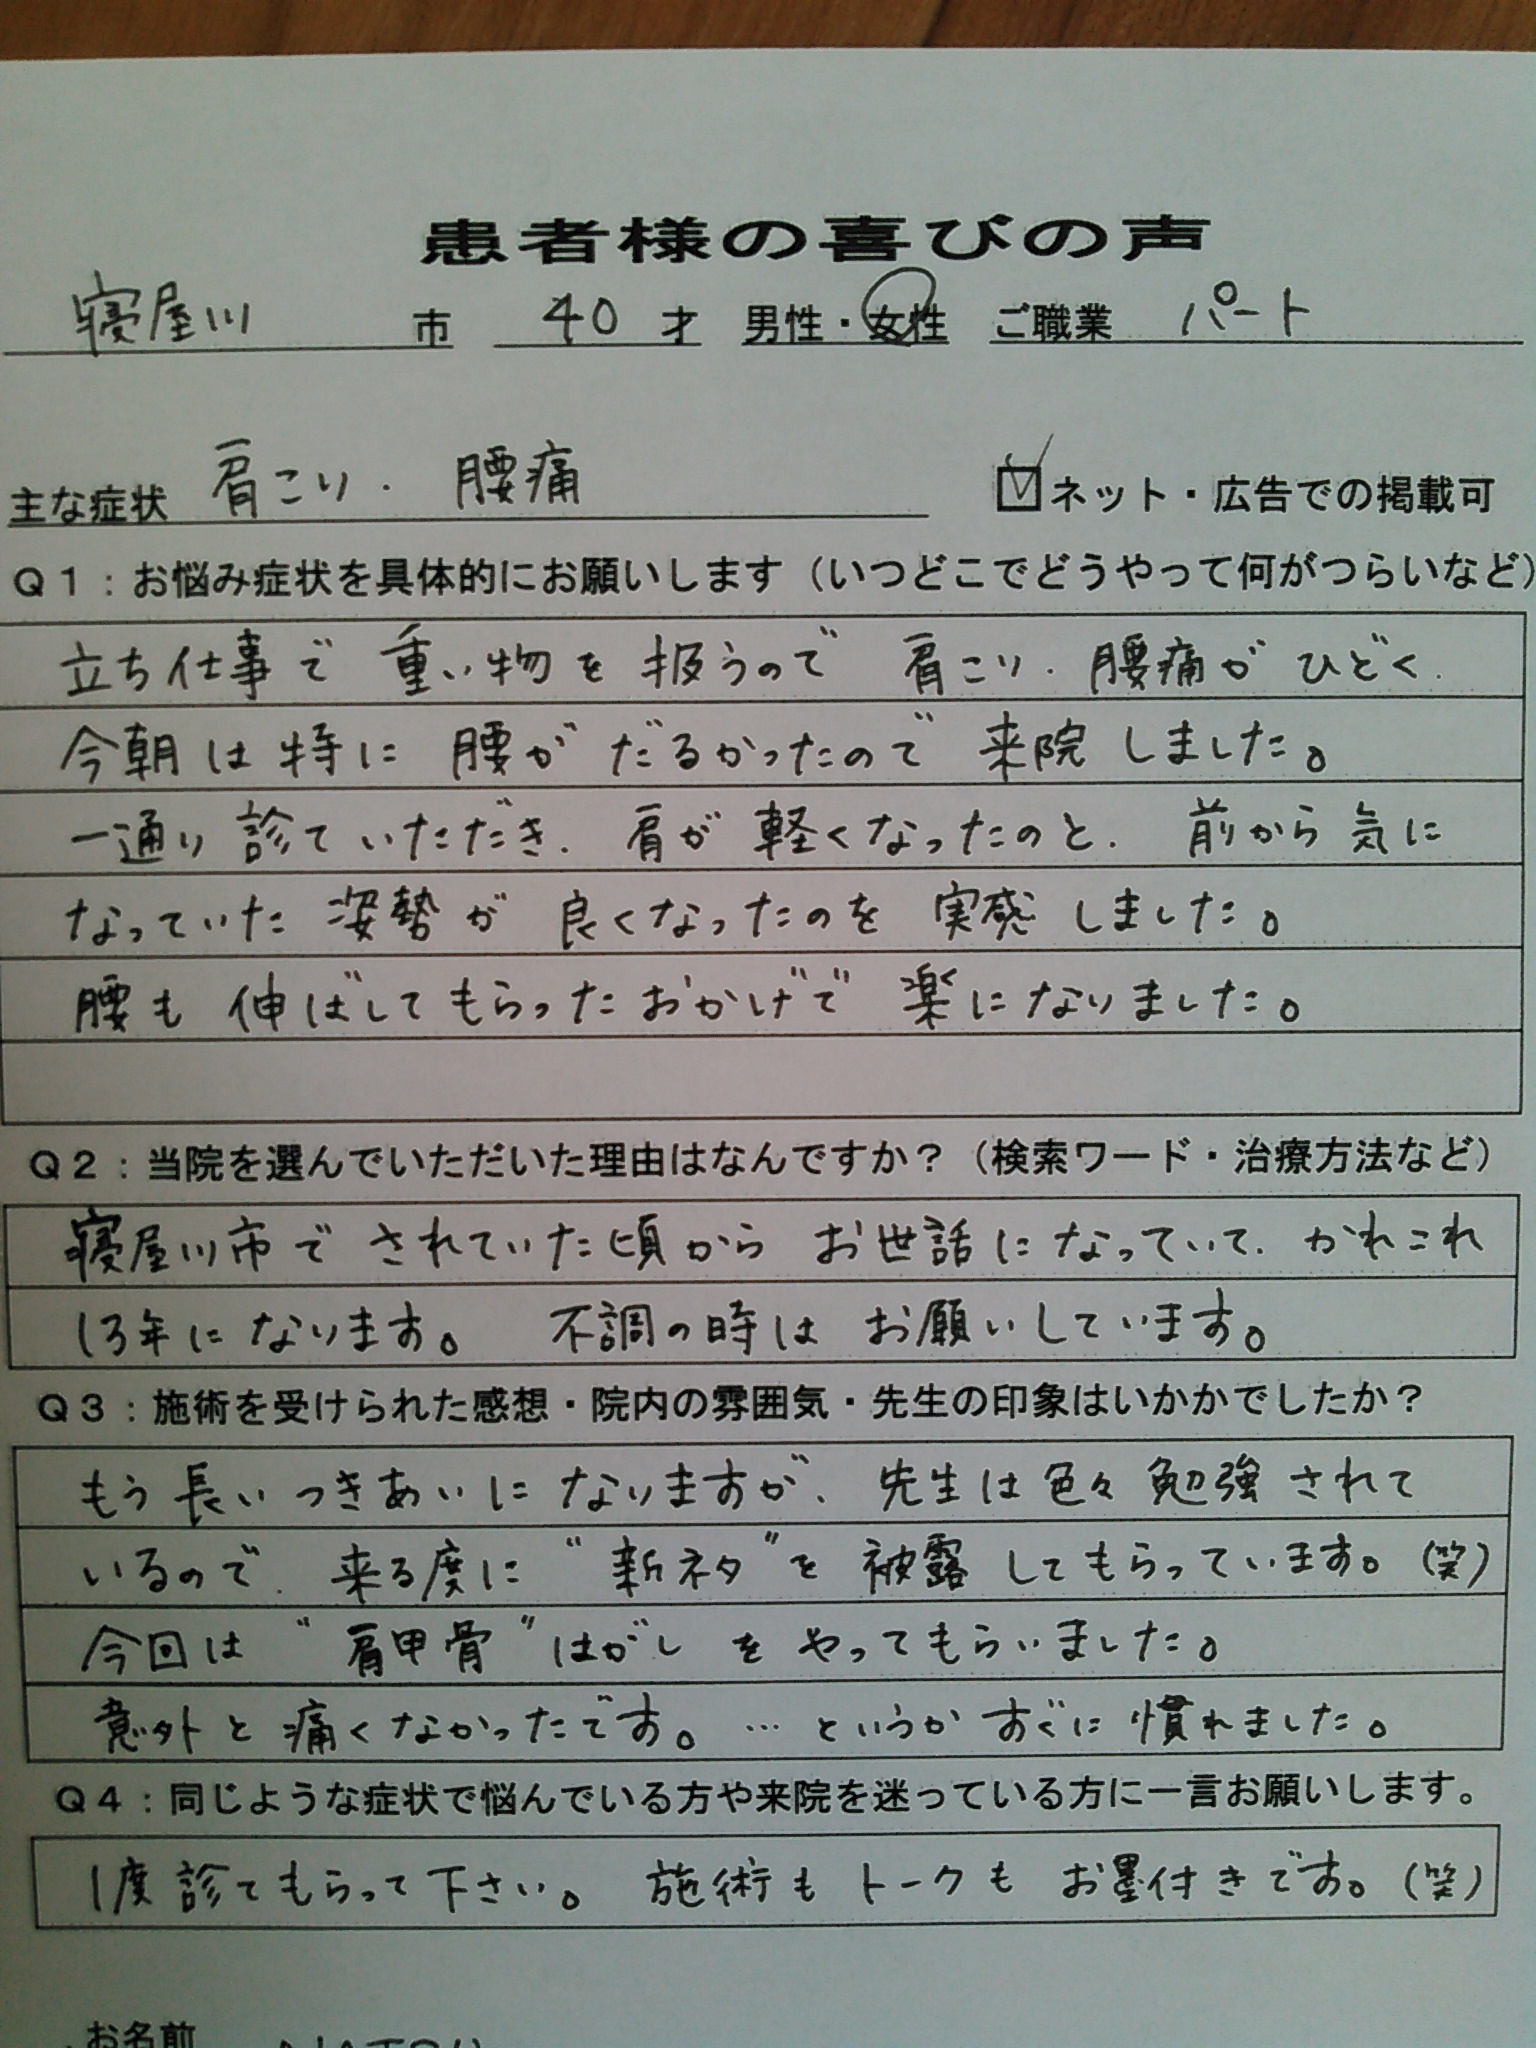 患者様の喜びの声
寝屋川 市 40 才 男性・女性 ご職業 パート
主な症状 肩こり. 腰痛 ☑ネット・広告での掲載可
Q1：お悩み症状を具体的にお願いします（いつどこでどうやって何がつらいなど）
立ち仕事で 重い物を 扱うので 肩こり. 腰痛が ひどく.
今朝は特に 腰が だるかったので 来院しました。
一通り 診ていただき. 肩が 軽くなったのと. 前から気に
なっていた 姿勢が 良くなったのを 実感しました。
腰も 伸ばしてもらったおかげで 楽になりました。
Q2：当院を選んでいただいた理由はなんですか？（検索ワード・治療方法など）
寝屋川市で されていた頃から お世話になっていて. かれこれ
13年になります。 不調の時は お願いしています。
Q3：施術を受けられた感想・院内の雰囲気・先生の印象はいかかでしたか？
もう 長いつきあいに なりますが、 先生は色々 勉強されて
いるので. 来る度に “新ネタ”を 被露してもらっています。(笑)
今回は “肩甲骨”はがし を やってもらいました。
意外と 痛くなかったです。…というか すぐに 慣れました。
Q4：同じような症状で悩んでいる方や来院を迷っている方に一言お願いします。
1度 診てもらって下さい。 施術も トークも お墨付きです。(笑)
お名前